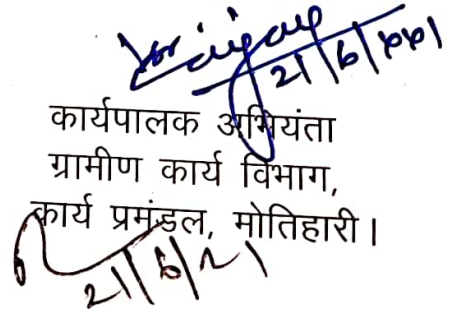 21/6/2021
कार्यपालक अभियंता
ग्रामीण कार्य विभाग,
कार्य प्रमंडल, मोतिहारी।
21/6/21